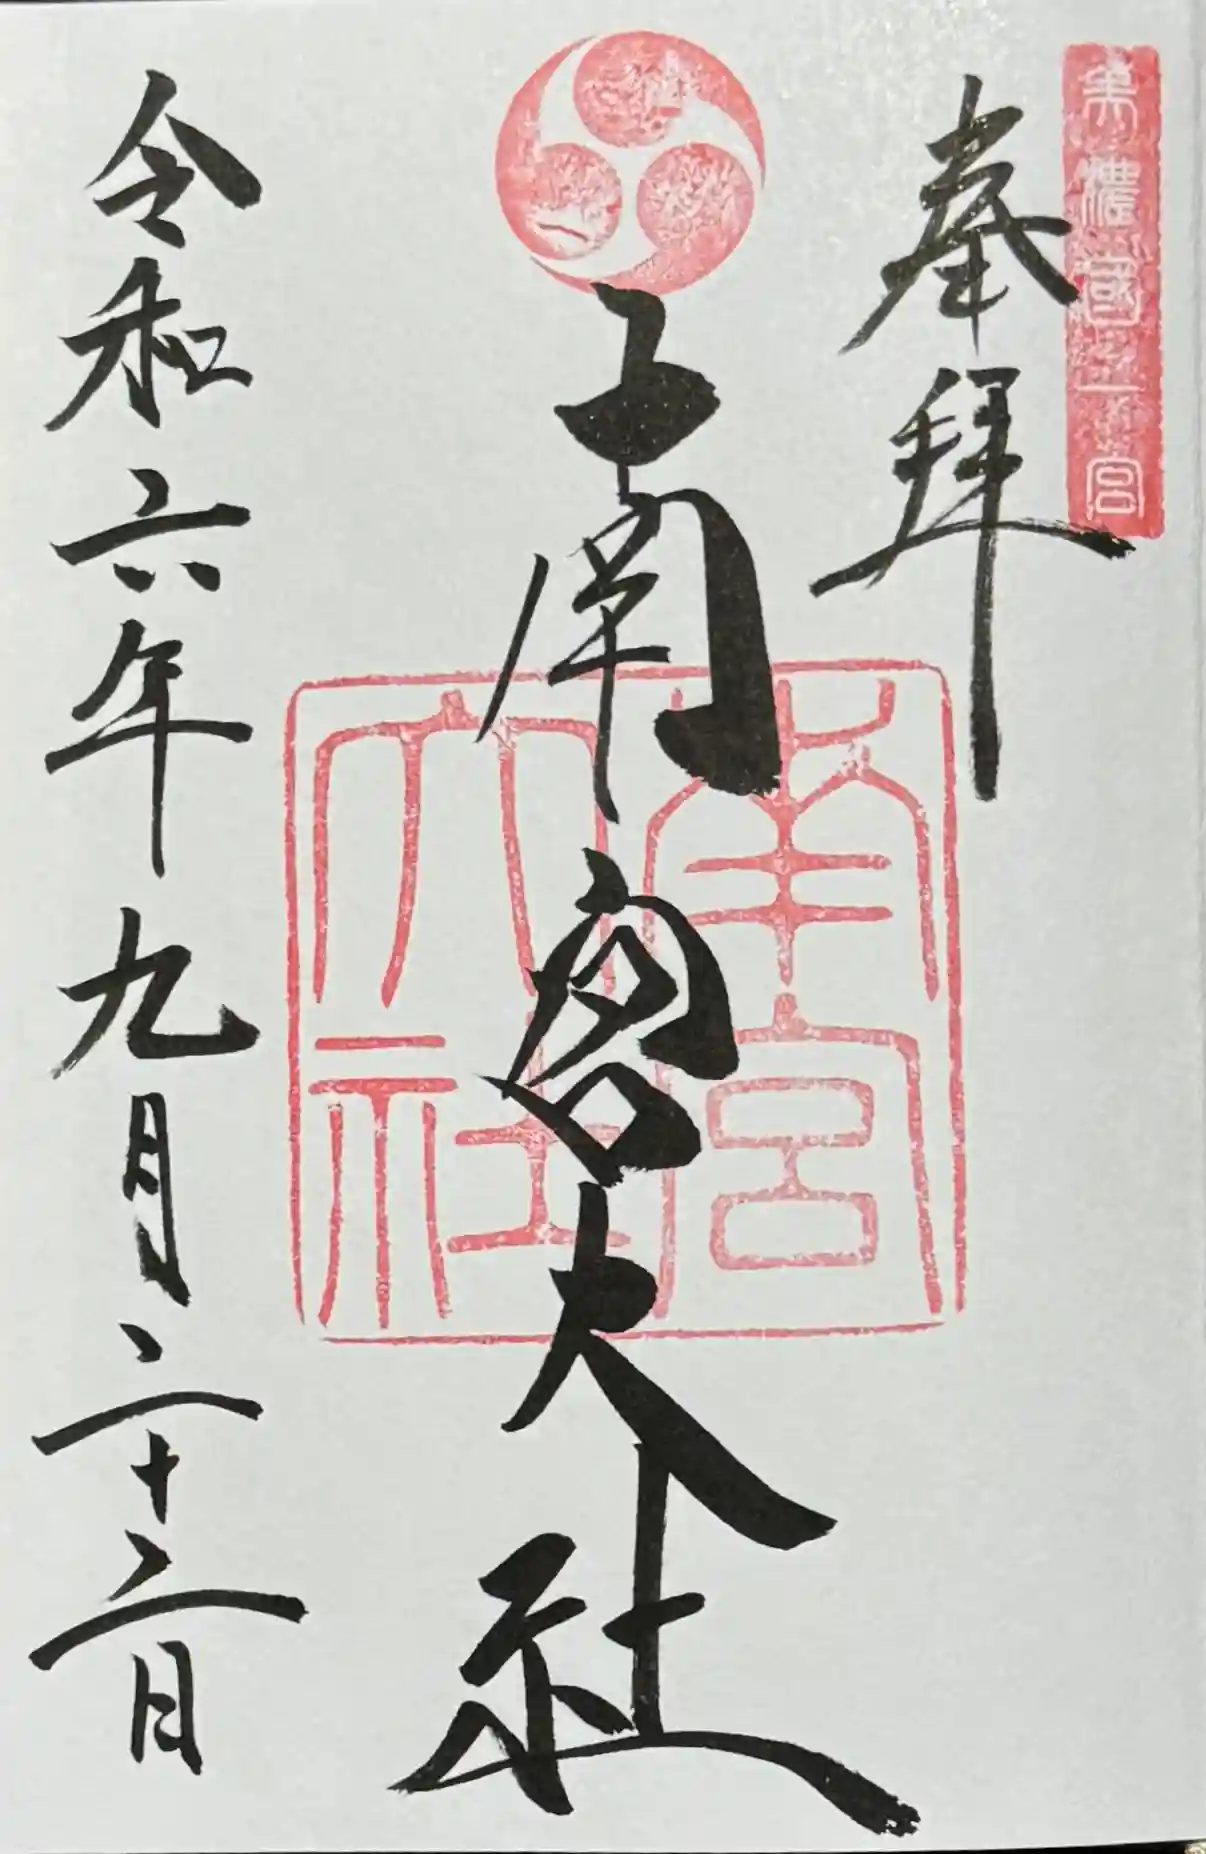 美濃國一之宮
奉拝
南宮大社
南宮大社
令和六年九月二十二日